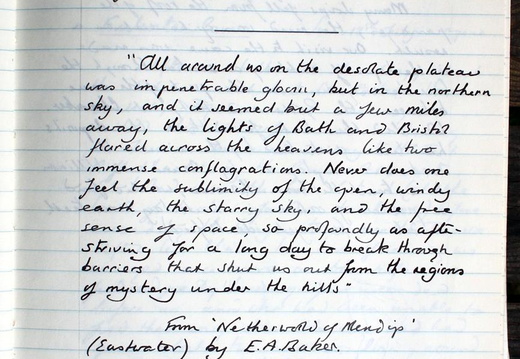 "All around us on the desolate plateau
was impenetrable gloom, but in the northern
sky, and it seemed but a few miles
away, the lights of Bath and Bristol
flared across the heavens like two
immense conflagrations. Never does one
feel the sublimity of the open, windy
earth, the starry sky, and the free
sense of space, so profoundly as after
striving for a long day to break through
barriers that shut us out from the regions
of mystery under the hills"
From 'Netherworld of Mendip'
(Eastwater) by E.A. Baker.